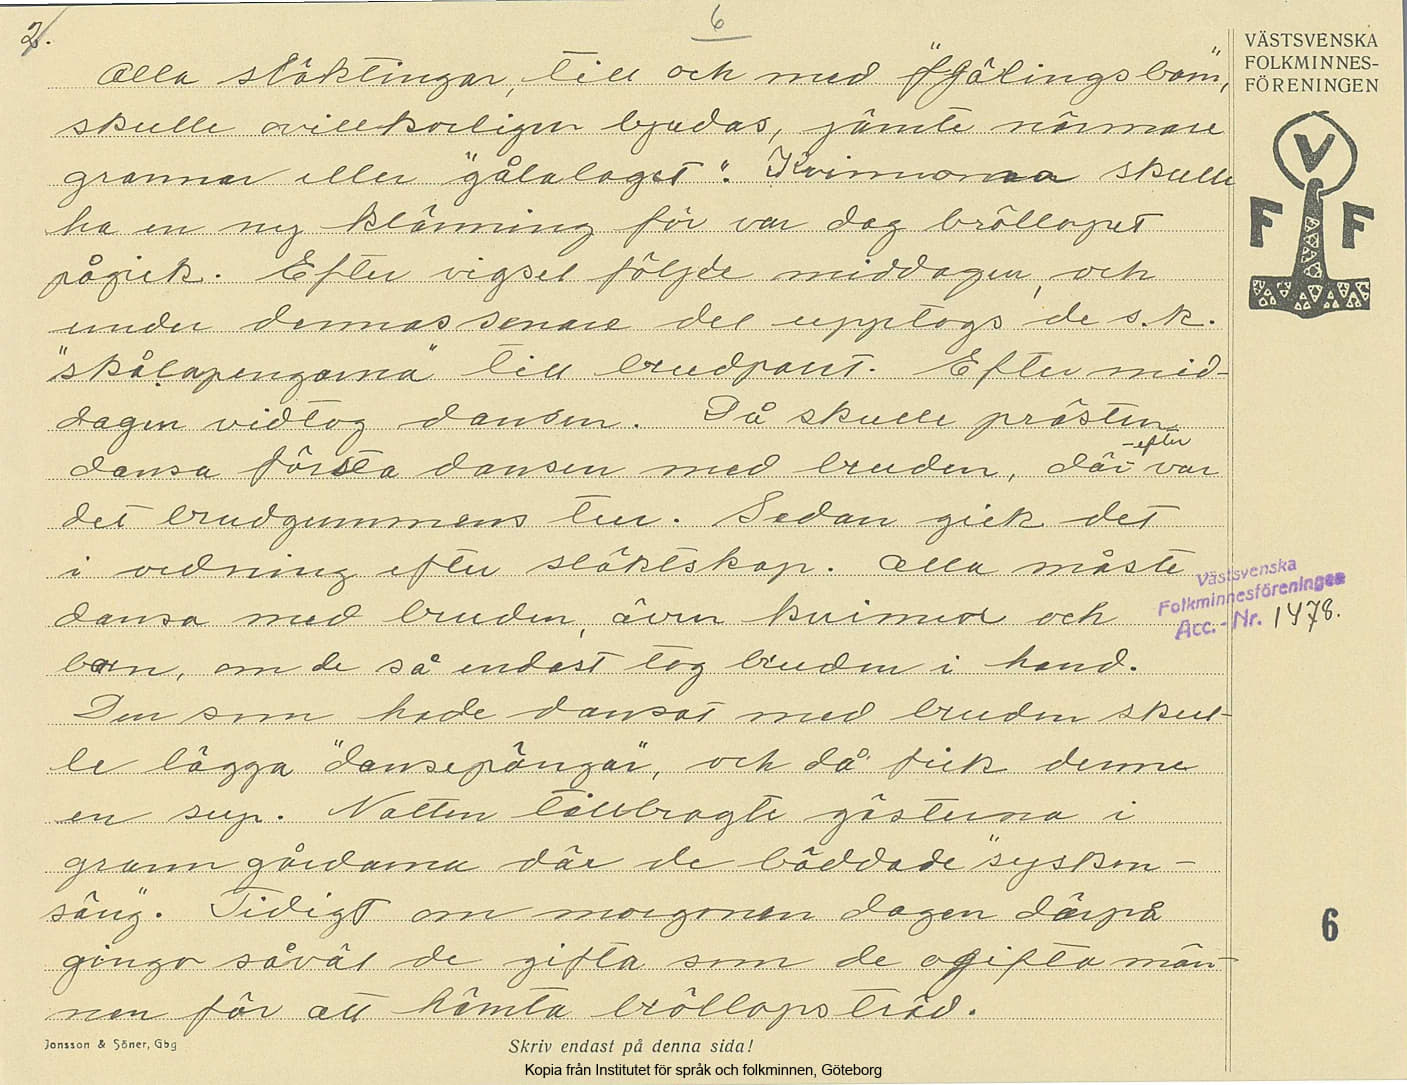 2.
6
VÄSTSVENSKA
FOLKMINNES-
FÖRENINGEN
V
F F
Alla släktingar, till och med "fjälingsbarn",
skulle ovillkorligen bjudas, jämte närmare
grannar eller "gålalaget". Kvinnorna skulle
ha en ny klänning för var dag bröllopet
pågick. Efter vigsel följde middagen, och
under dennas senare del upptogs de s.k.
"skålapengarna" till brudparet. Efter mid-
dagen vidtog dansen. Då skulle prästen
dansa första dansen med bruden, där-efter var
det brudgummens tur. Sedan gick det
i ordning efter släktskap. Alla måste
dansa med bruden, även kvinnor och
barn, om de så endast tog bruden i hand.
Den som hade dansat med bruden skul-
le lägga "dansepängar", och då fick denne
en sup. Natten tillbragte gästerna i
granngårdarna där de bäddade "syskon-
säng". Tidigt om morgonen dagen därpå
gingo såväl de gifta som de ogifta män-
nen för att hämta bröllopsträd.
Västsvenska
Folkminnesföreningen
Acc.-Nr. 1478.
6
Jonsson & Söner, Gbg
Skriv endast på denna sida!
Kopia från Institutet för språk och folkminnen, Göteborg